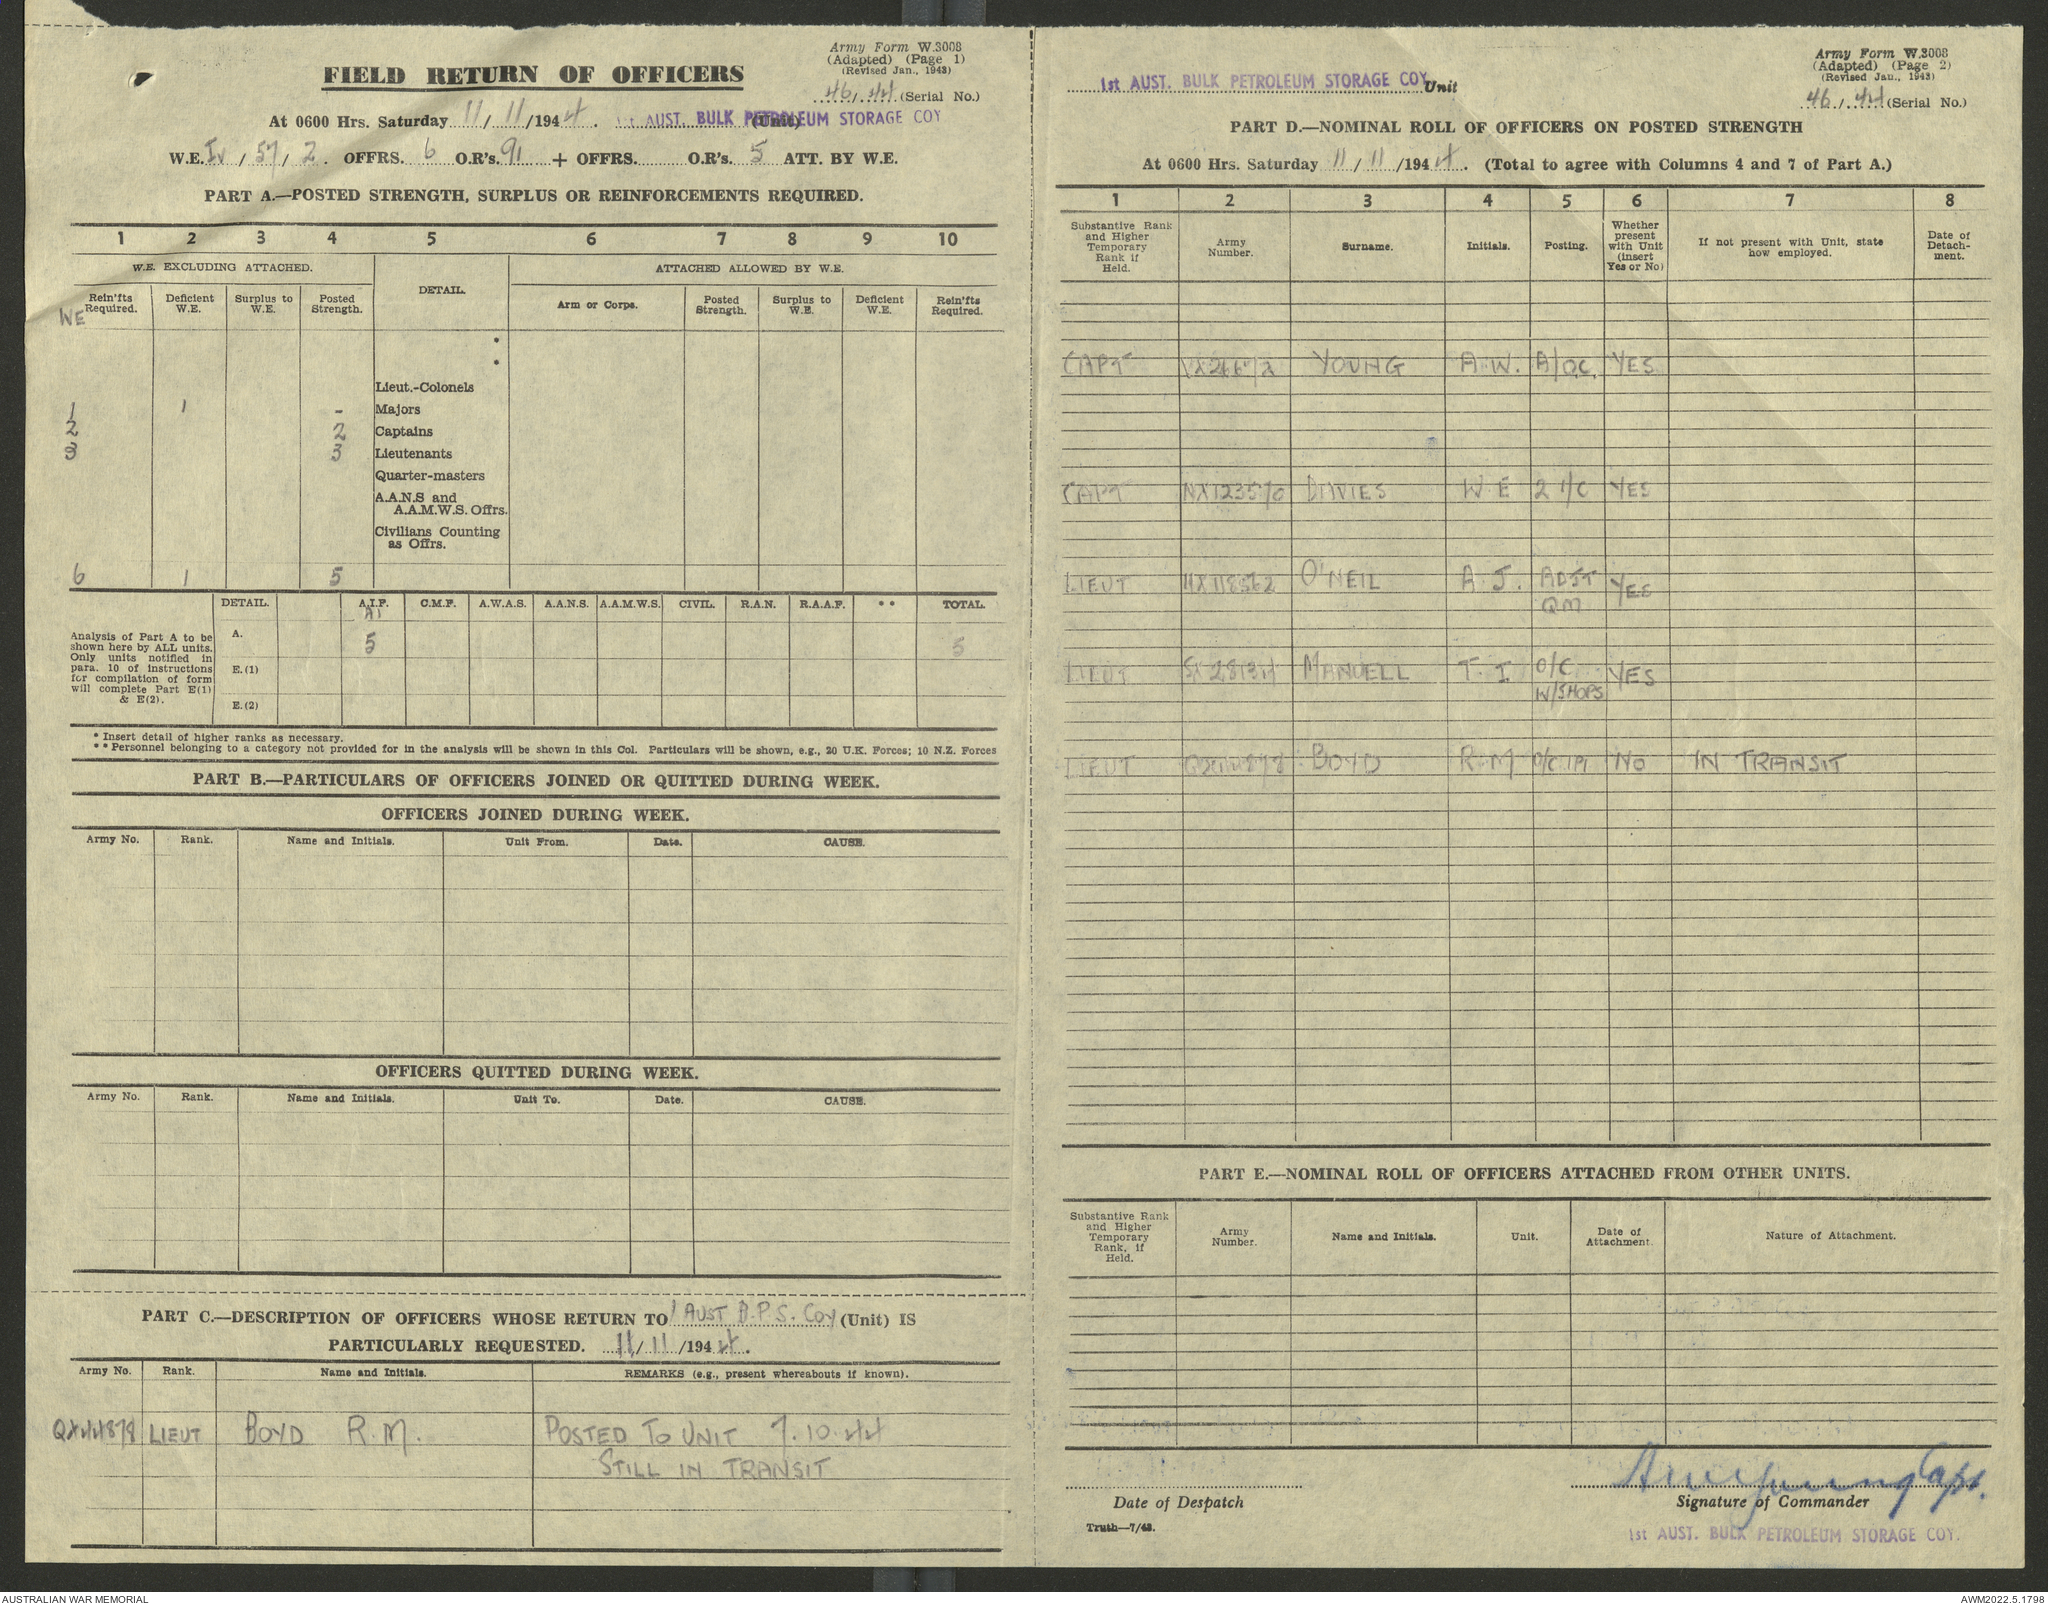 Army Form W.3008
(Adapted) (Page 1)
(Revised Jan., 1943)
FIELD RETURN OF OFFICERS
46/44 (Serial No.)
At 0600 Hrs. Saturday 11/11/1944. 1st AUST. BULK PETROLEUM STORAGE COY (Unit)
W.E. IV/57/2. OFFRS. 6 O.R's. 91 + OFFRS. O.R's. 5 ATT. BY W.E.
PART A.—POSTED STRENGTH, SURPLUS OR REINFORCEMENTS REQUIRED.
1 2 3 4 5 6 7 8 9 10
W.E. EXCLUDING ATTACHED. DETAIL. ATTACHED ALLOWED BY W.E.
Rein'fts Required. Deficient W.E. Surplus to W.E. Posted Strength. Arm or Corps. Posted Strength. Surplus to W.E. Deficient W.E. Rein'fts Required.
WE
*
*
Lieut.-Colonels
1 1 - Majors
2 2 Captains
3 3 Lieutenants
Quarter-masters
A.A.N.S and
A.A.M.W.S. Offrs.
Civilians Counting
as Offrs.
6 1 5
DETAIL. A.I.F. C.M.F. A.W.A.S. A.A.N.S. A.A.M.W.S. CIVIL. R.A.N. R.A.A.F. ** TOTAL.
A1
Analysis of Part A to be
shown here by ALL units.
Only units notified in
para. 10 of instructions
for compilation of form
will complete Part E(1)
& E(2).
A. 5 5
E.(1)
E.(2)
* Insert detail of higher ranks as necessary.
** Personnel belonging to a category not provided for in the analysis will be shown in this Col. Particulars will be shown, e.g., 20 U.K. Forces; 10 N.Z. Forces
PART B.—PARTICULARS OF OFFICERS JOINED OR QUITTED DURING WEEK.
OFFICERS JOINED DURING WEEK.
Army No. Rank. Name and Initials. Unit From. Date. CAUSE.
OFFICERS QUITTED DURING WEEK.
Army No. Rank. Name and Initials. Unit To. Date. CAUSE.
PART C.—DESCRIPTION OF OFFICERS WHOSE RETURN TO 1 AUST B.P.S. COY (Unit) IS
PARTICULARLY REQUESTED. 11/11/1944.
Army No. Rank. Name and Initials. REMARKS (e.g., present whereabouts if known).
QX44878 LIEUT BOYD R.M. POSTED TO UNIT 7.10.44
STILL IN TRANSIT
Army Form W.3008
(Adapted) (Page 2)
(Revised Jan., 1943)
1st AUST. BULK PETROLEUM STORAGE COY. Unit
46/44 (Serial No.)
PART D.—NOMINAL ROLL OF OFFICERS ON POSTED STRENGTH
At 0600 Hrs. Saturday 11/11/1944. (Total to agree with Columns 4 and 7 of Part A.)
1 2 3 4 5 6 7 8
Substantive Rank and Higher Temporary Rank if Held. Army Number. Surname. Initials. Posting. Whether present with Unit (insert Yes or No) If not present with Unit, state how employed. Date of Detach-ment.
CAPT YOUNG A.W. A/OC. YES
CAPT NX123570 DAVIES W E 2 I/C YES
LIEUT O'NEIL A.J. ADJT YES
QM
LIEUT MANUELL T. I O/C YES
W/SHOPS
LIEUT QX44878 BOYD R.M O/C NO IN TRANSIT
PART E.—NOMINAL ROLL OF OFFICERS ATTACHED FROM OTHER UNITS.
Substantive Rank and Higher Temporary Rank, if Held. Army Number. Name and Initials. Unit. Date of Attachment. Nature of Attachment.
AWYoung Capt.
Date of Despatch Signature of Commander
Truth—7/43.
1st AUST. BULK PETROLEUM STORAGE COY.
AUSTRALIAN WAR MEMORIAL AWM2022.5.1798